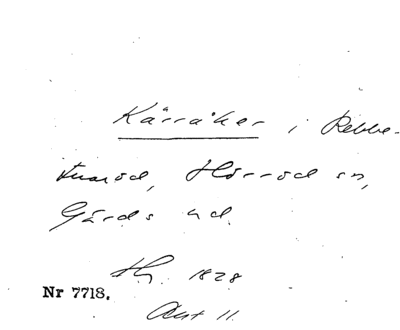 Kärråker i Rebbe-
tuaröd, Hörröd sn,
Gärds hd.
1828
Nr 7718.
Akt 11.